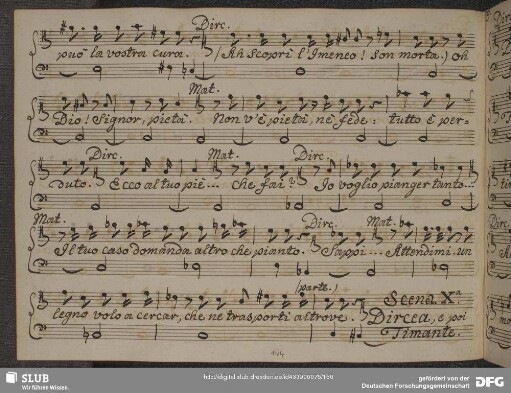 Dirc.
può la vostra cura. (Ah scoprì l'Imeneo! son morta.) Oh
Mat.
Dio! Signor, pietà. Non v'è pietà, nè fede: tutto è per-
Dirc. Mat. Dirc.
duto. Ecco al tuo piè... Che fai? Io voglio pianger tanto...
Mat. Dirc. Mat.
Il tuo caso domanda altro che pianto. Sappi... Attendimi. un
parte.)
legno volo a cercar, che ne trasporti altrove.
Scena X.a
Dircea, e poi
Timante.
SLUB
Wir führen Wissen.
gefördert von der
Deutschen Forschungsgemeinschaft
DFG